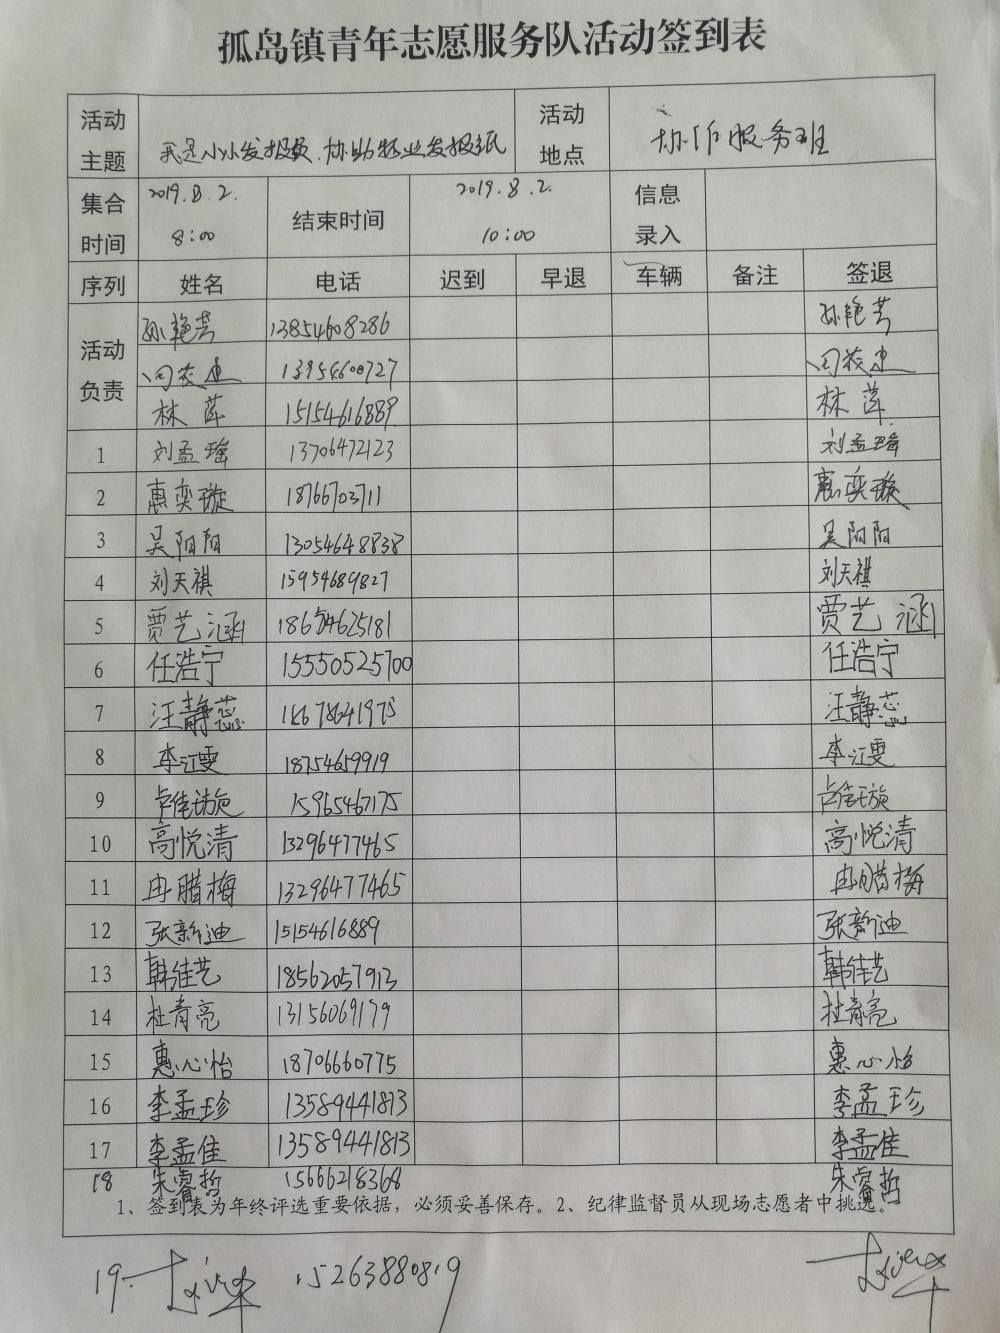 孤岛镇青年志愿服务队活动签到表
活动主题 我是小小发报员、协助物业发报纸 活动地点 协作服务班
集合时间 2019.8.2. 8:00 结束时间 2019.8.2. 10:00 信息录入
序列 姓名 电话 迟到 早退 车辆 备注 签退
活动负责 孙艳芳 13854608286 孙艳芳
13954600727
林萍 15154616889 林萍
1 刘孟瑶 13706472123 刘孟瑶
2 惠奕璇 18766703711 惠奕璇
3 吴阳阳 13054648838 吴阳阳
4 刘天祺 15954689827 刘天祺
5 贾艺涵 18654625181 贾艺涵
6 任浩宁 15550525700 任浩宁
7 汪静蕊 18678641975 汪静蕊
8 李江雯 18754659919 李江雯
9 15965467175
10 高悦清 13296477465 高悦清
11 冉腊梅 13296477465 冉腊梅
12 张新迪 15154616889 张新迪
13 韩佳艺 18562057913 韩佳艺
14 杜青亮 13156069179 杜青亮
15 惠心怡 18706660775 惠心怡
16 李孟珍 13589441813 李孟珍
17 李孟佳 13589441813 李孟佳
18 朱睿哲 15666218368 朱睿哲
1、签到表为年终评选重要依据，必须妥善保存。2、纪律监督员从现场志愿者中挑选。
19. 15263880819